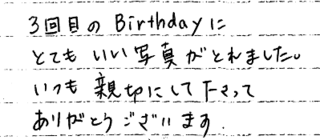 3回目のBirthdayに
とてもいい写真がとれました。
いつも親切にして下さって
ありがとうございます